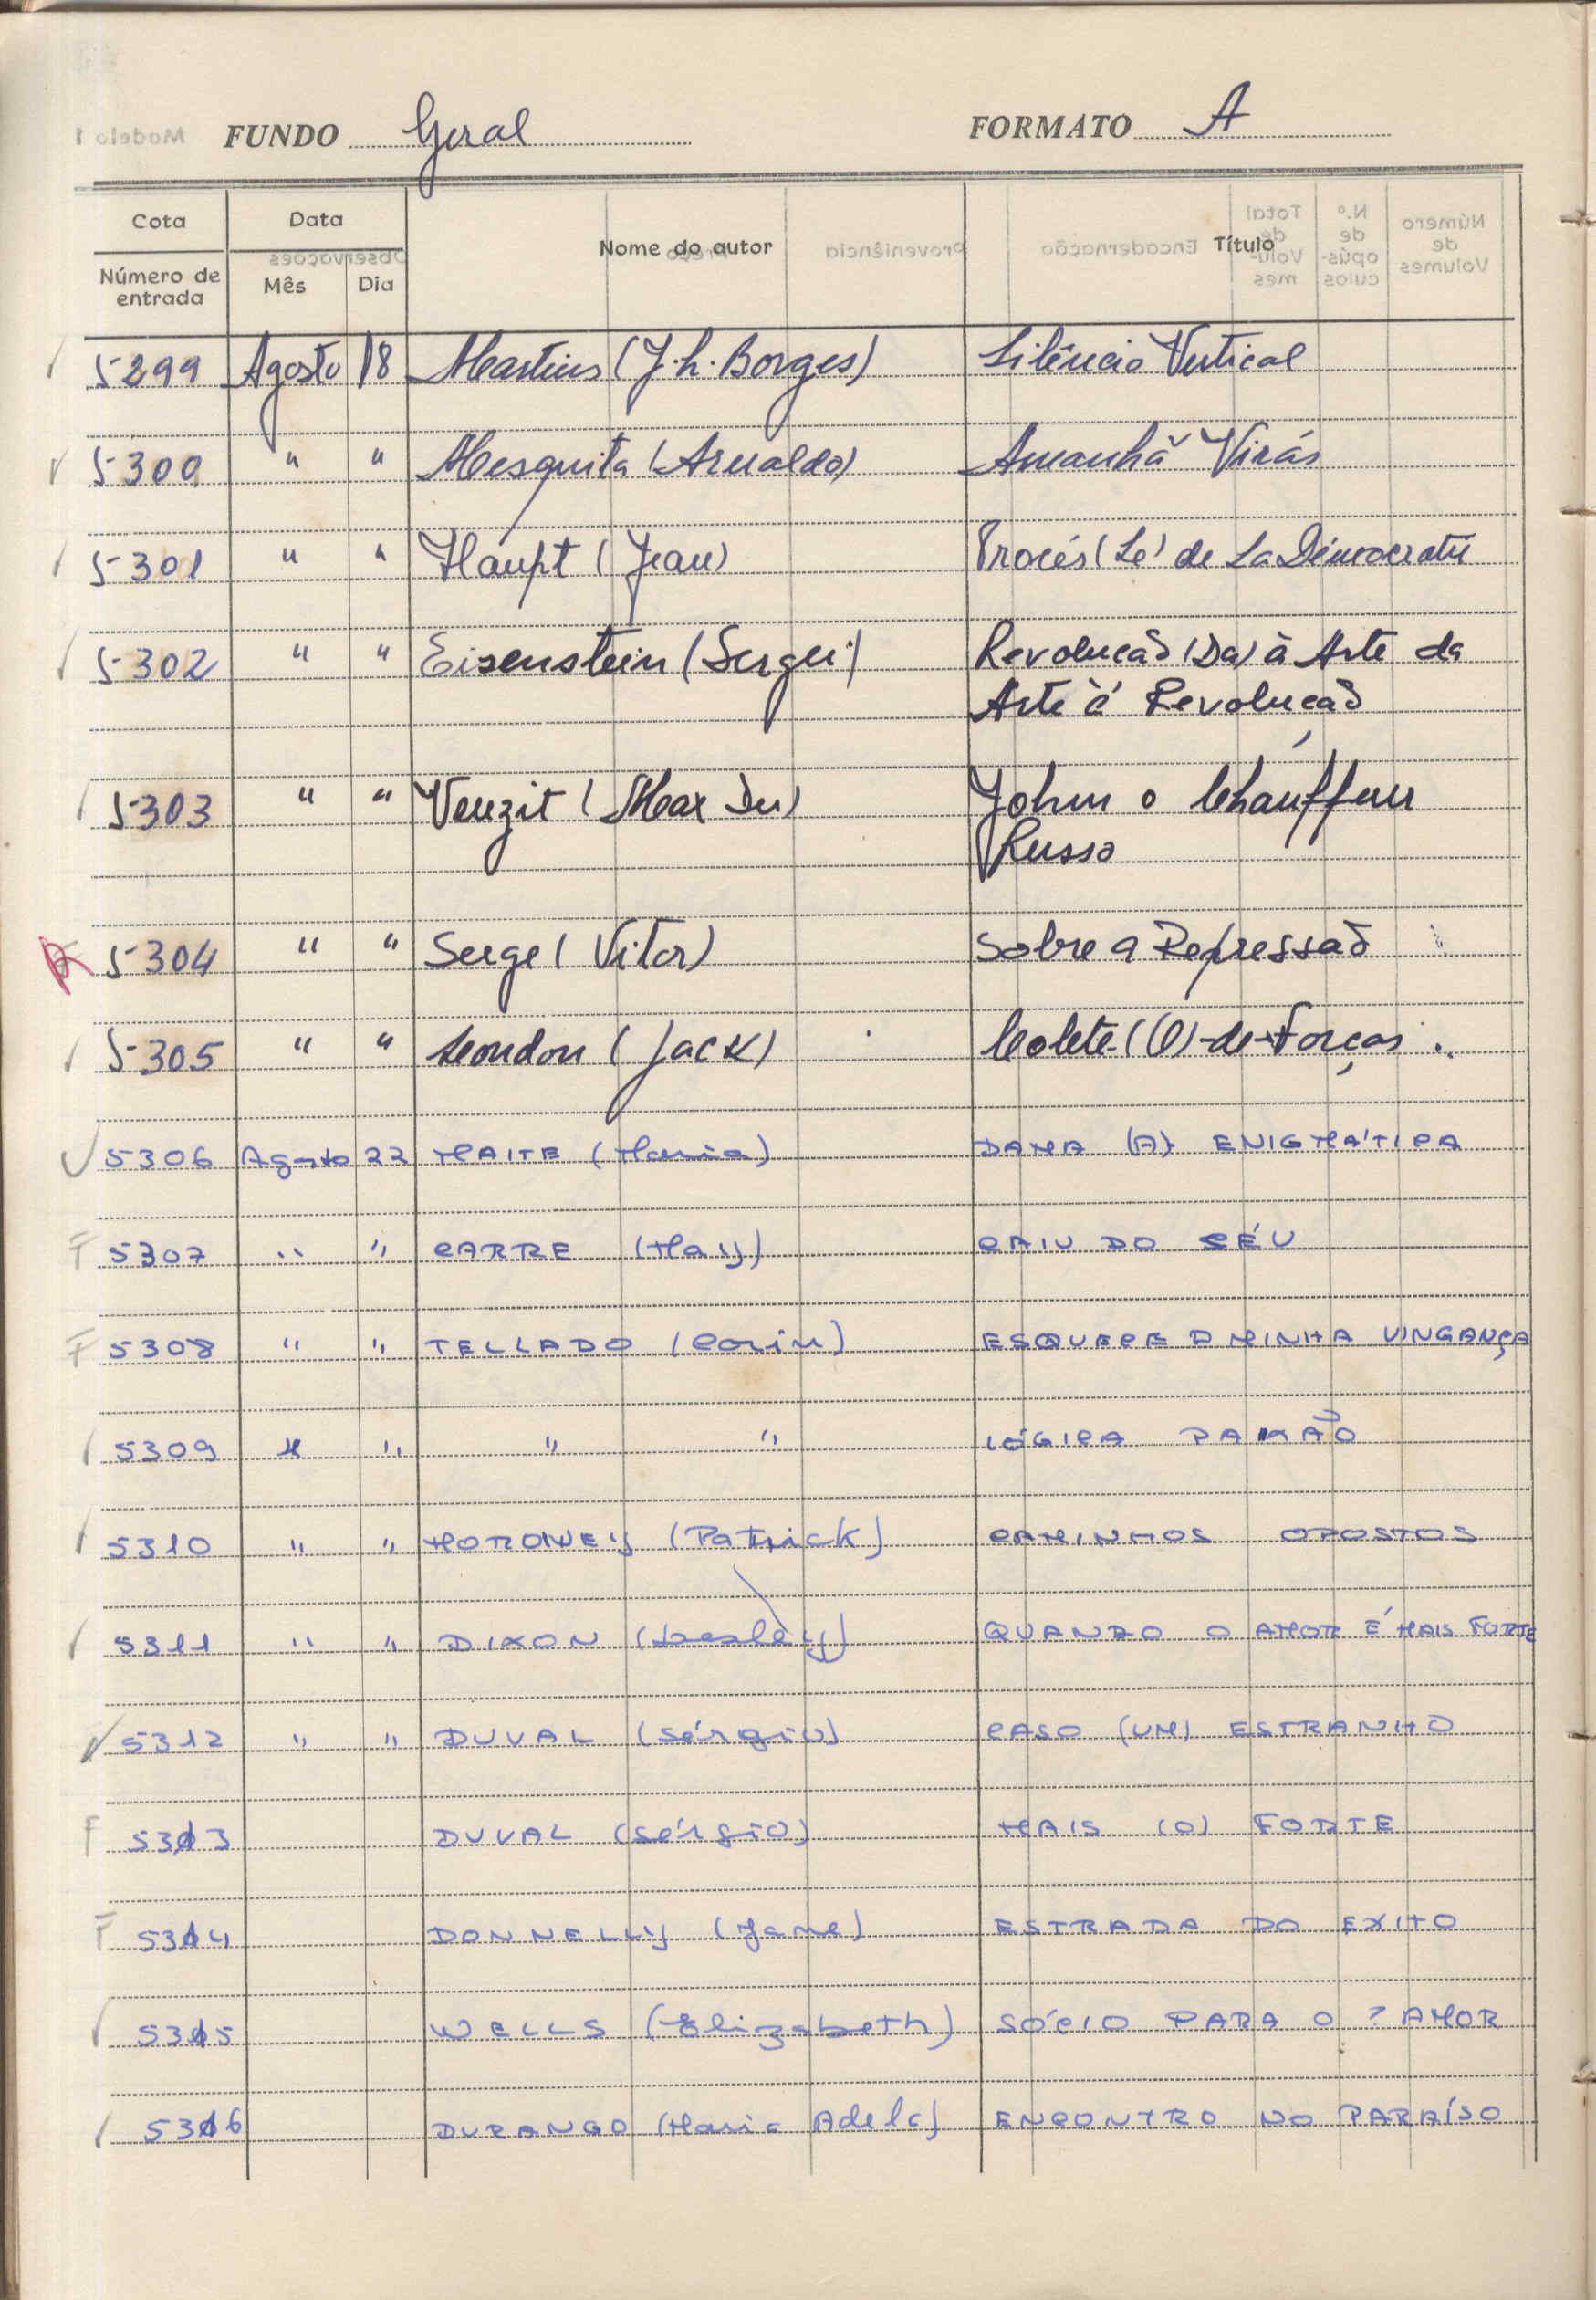 FUNDO Geral FORMATO A
Cota Data Nome do autor Título
Número de entrada Mês Dia
5299 Agosto 18 Martins (J. L. Borges) Silêncio Vertical
5300 " " Mesquita (Arnaldo) Amanhã Virás
5301 " " Haupt (Jean) Procés (Le) de La Démocratie
5302 " " Eisenstein (Serguei) Revolucaõ (Da) à Arte da
Arte à Revolucaõ
5303 " " Veuzit (Max Du) John o Chauffeur
Russo
5304 " " Serge (Vitor) Sobre a Repressaõ
5305 " " London (Jack) Colete-(O)-de-Forças
5306 Agosto 22 MAITE (Maria) DAMA (A) ENIGMÁTICA
5307 " " CARRE (May) CAIU DO CÉU
5308 " " TELLADO (Corin) ESQUECE A MINHA VINGANÇA
5309 " " " " LÓGICA PAIXÃO
5310 " " (Patrick) CAMINHOS OPOSTOS
5311 " " DIXON (Lesley) QUANDO O AMOR É MAIS FORTE
5312 " " DUVAL (Sérgio) CASO (UM) ESTRANHO
5313 DUVAL (Sérgio) MAIS (O) FORTE
5314 DONNELLY (Jane) ESTRADA DO EXITO
5315 WELLS (Elizabeth) SÓCIO PARA O ? AMOR
5316 DURANGO (Maria Adela) ENCONTRO NO PARAÍSO